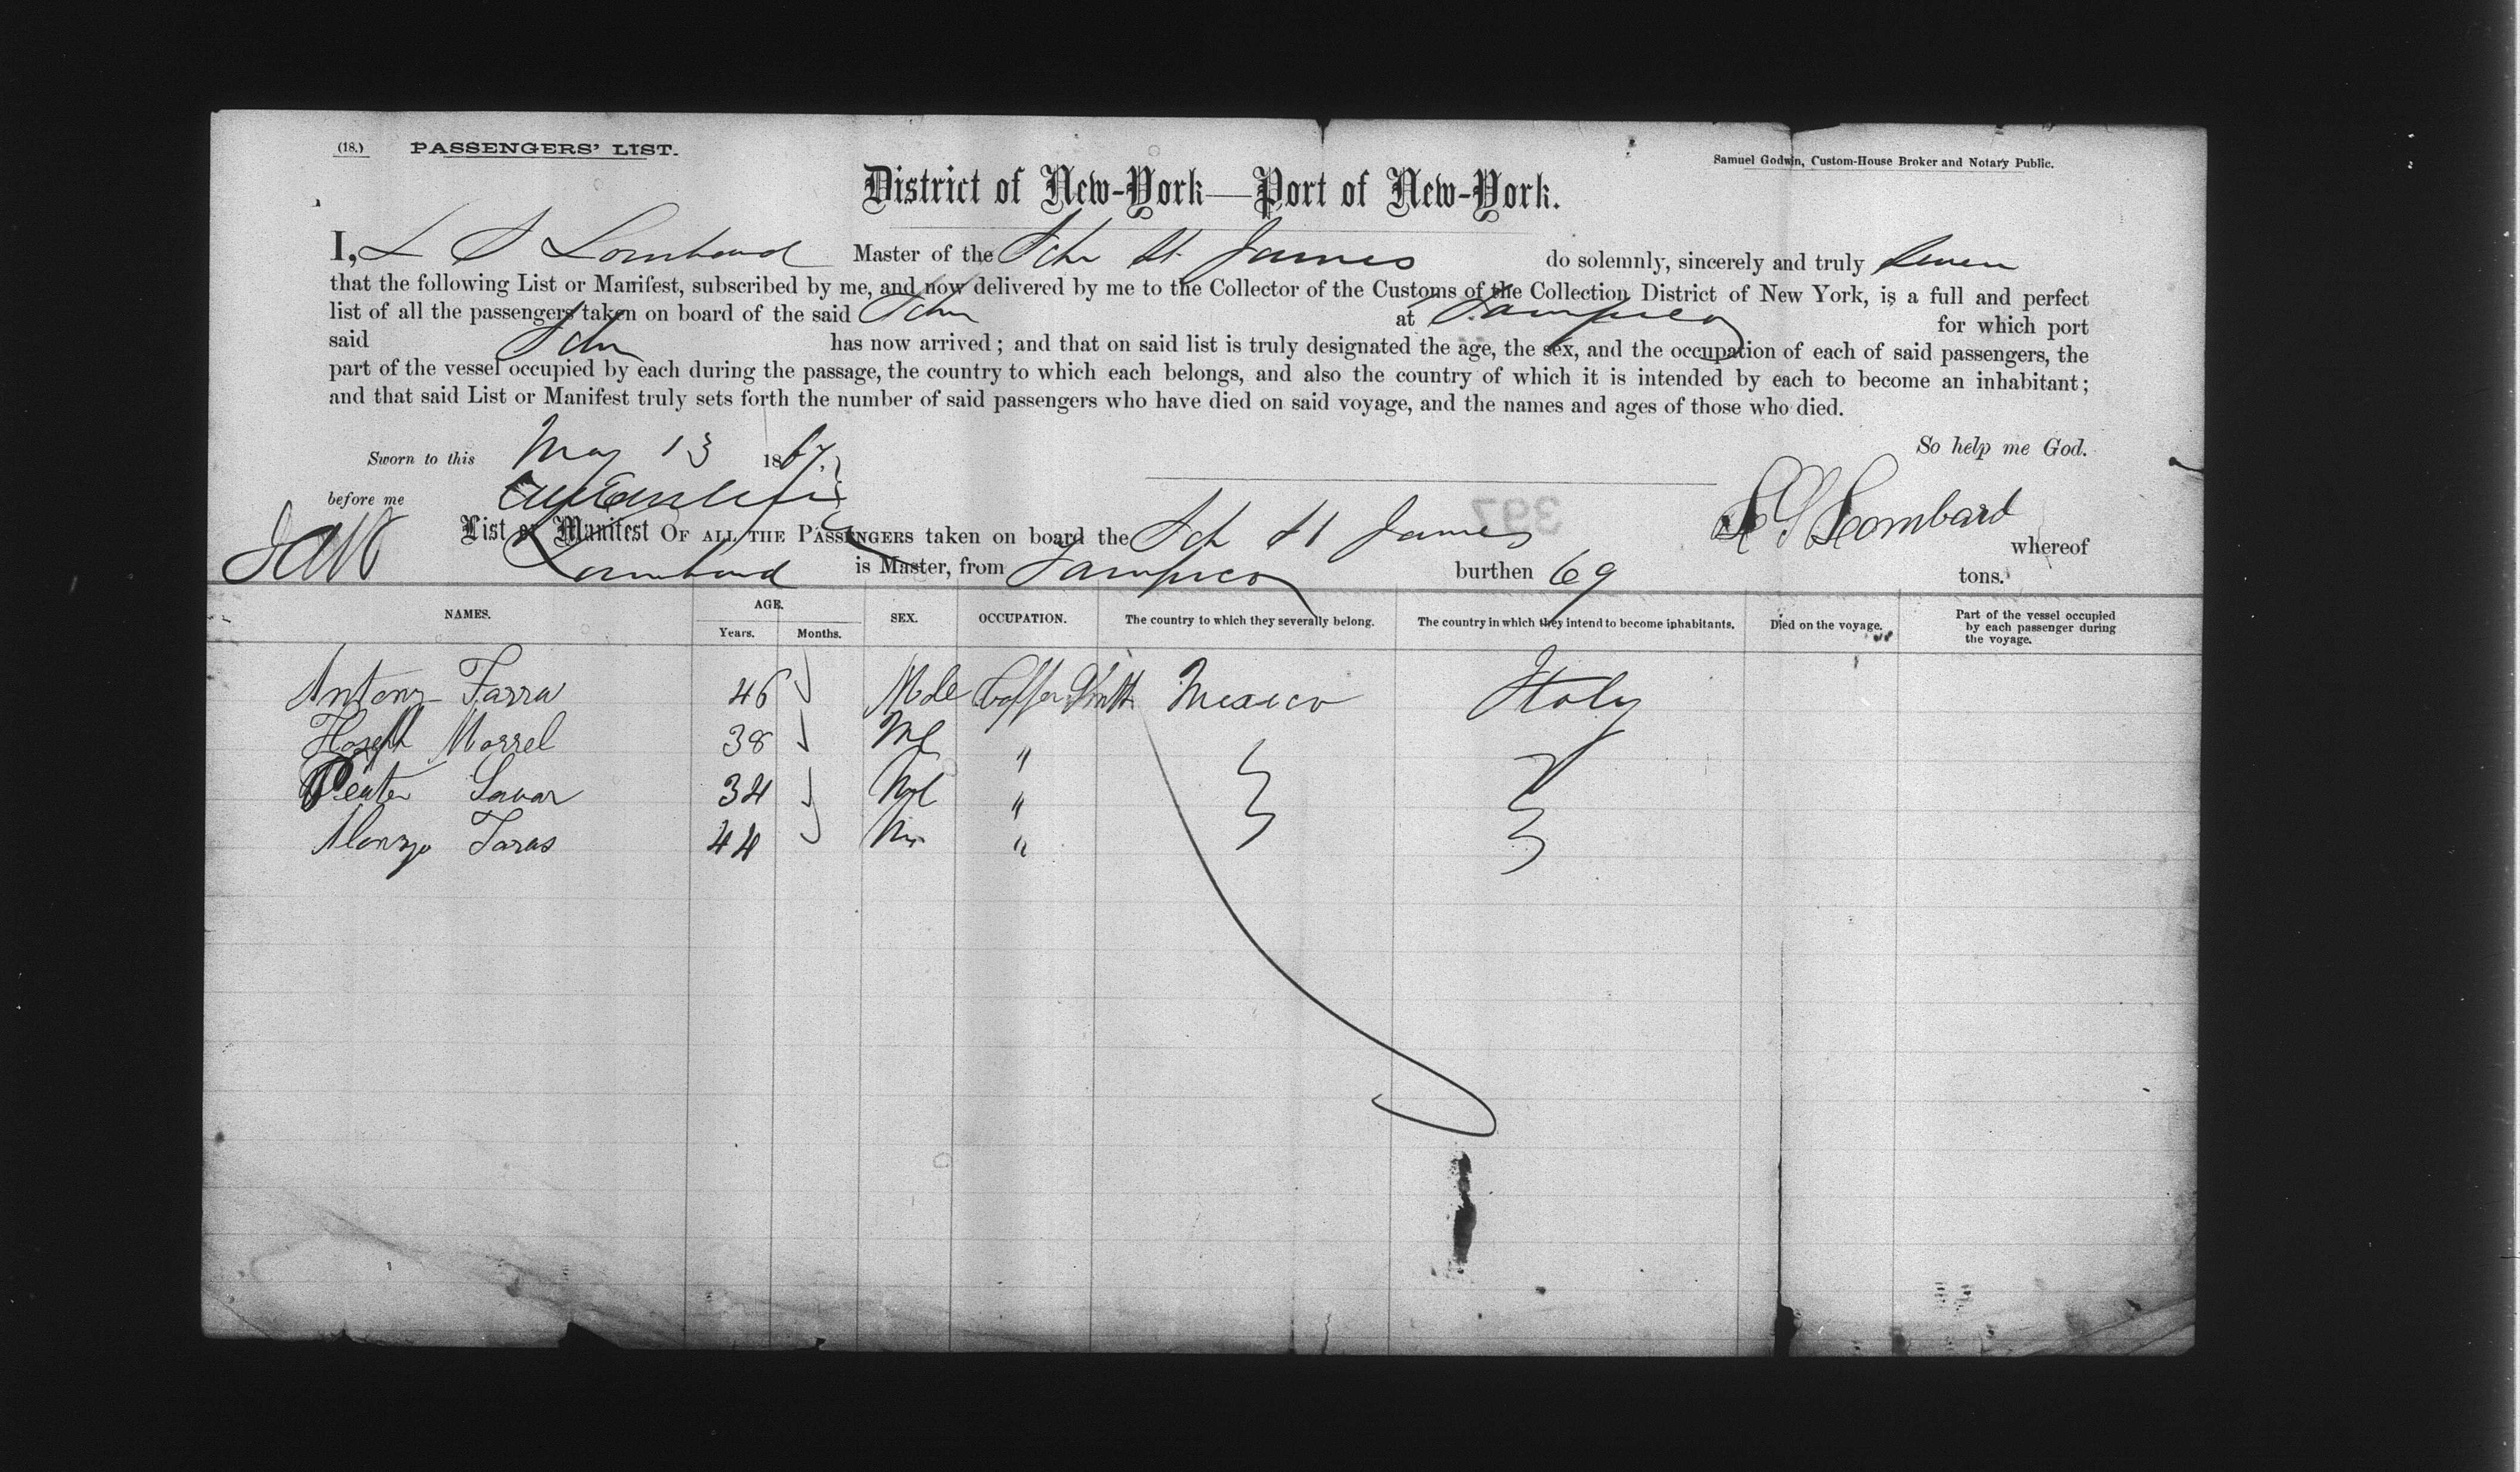 (18.) PASSENGERS' LIST.
Samuel Godwin, Custom-House Broker and Notary Public.
District of New-York—Port of New-York.
I, L S Lombard Master of the Schr St. James do solemnly, sincerely and truly swear
that the following List or Manifest, subscribed by me, and now delivered by me to the Collector of the Customs of the Collection District of New York, is a full and perfect
list of all the passengers taken on board of the said Schr at Tampico for which port
said Schr has now arrived; and that on said list is truly designated the age, the sex, and the occupation of each of said passengers, the
part of the vessel occupied by each during the passage, the country to which each belongs, and also the country of which it is intended by each to become an inhabitant;
and that said List or Manifest truly sets forth the number of said passengers who have died on said voyage, and the names and ages of those who died.
Sworn to this May 13 1867. So help me God.
before me
L S Lombard
397
List or Manifest OF ALL THE PASSENGERS taken on board the Sch St James whereof
Lombard is Master, from Tampico burthen 69 tons.
NAMES. AGE. Years. Months. SEX. OCCUPATION. The country to which they severally belong. The country in which they intend to become inhabitants. Died on the voyage. Part of the vessel occupied by each passenger during the voyage.
Antony Farra 46 Male Mexico Italy
Hoseph Morrel 38 Ml "
Peater Savar 34 Ml "
Alonzo Faras 44 "